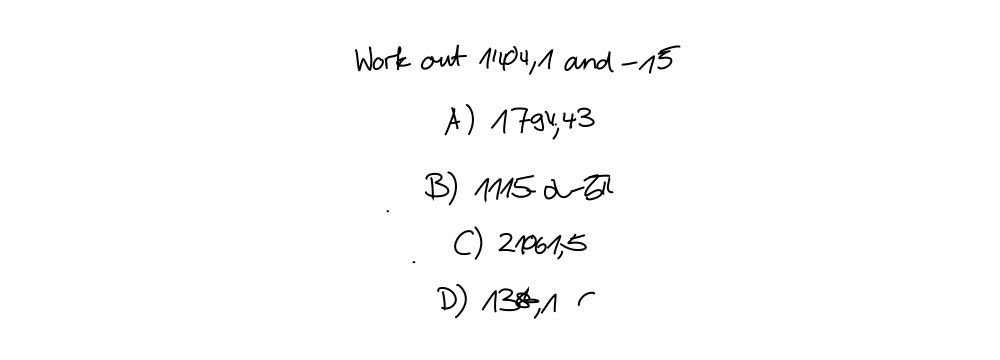 Work out 1404,1 and -15
A) 1794,43
B) 1115
C) 21061,5
D)